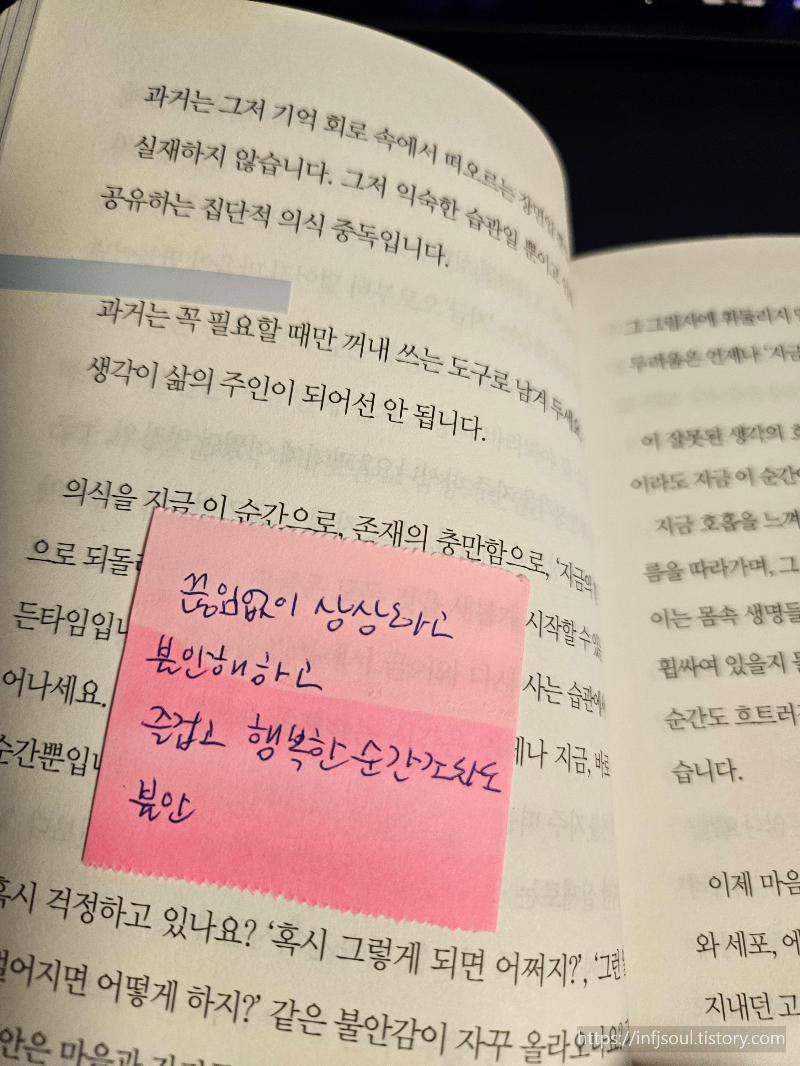 과거는 그저 기억 회로 속에서 떠오르는 장면일
실재하지 않습니다. 그저 익숙한 습관일 뿐이고
공유하는 집단적 의식 중독입니다.
과거는 꼭 필요할 때만 꺼내 쓰는 도구로 남겨 두세요.
생각이 삶의 주인이 되어선 안 됩니다.
의식을 지금 이 순간으로, 존재의 충만함으로, ‘지금의
으로
시작할 수
든타임입니
사는 습관에서
어나세요.
지금, 바로
순간뿐입니
끊임없이 상상하고
불안해하고
즐겁고 행복한 순간조차도
불안
혹시 걱정하고 있나요? ‘혹시 그렇게 되면 어쩌지?’, ‘그런
벌어지면 어떻게 하지?’ 같은 불안감이 자꾸 올라오나요?
마음과
그 그림자에 휘둘리지
두려움은 언제나 ‘지금
이 잘못된 생각의
이라도 지금 이 순간에
지금 호흡을 느껴
름을 따라가며, 그
이는 몸속 생명들
휩싸여 있을지
순간도 흐트러
습니다.
이제 마음
와 세포, 에
지내던 고
https://infjsoul.tistory.com